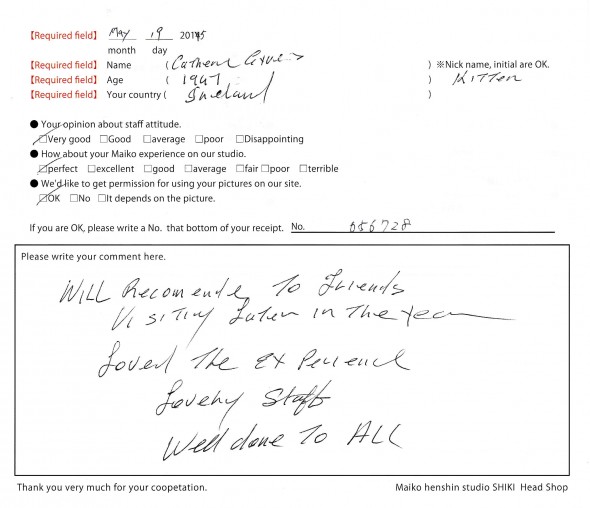 【Required field】 MAY 19 2015
month day
【Required field】 Name ( ) ※Nick name, initial are OK.
【Required field】 Age ( 1947 ) Kitten
【Required field】 Your country ( )
● Your opinion about staff attitude.
□Very good □Good □average □poor □Disappointing
● How about your Maiko experience on our studio.
□perfect □excellent □good □average □fair □poor □terrible
● We'd like to get permission for using your pictures on our site.
□OK □No □It depends on the picture.
If you are OK, please write a No. that bottom of your receipt. No. 056728
Please write your comment here.
WILL Recomende To Friends
Visiting Later in The year
Loved The Experience
Lovely Staff
Well done To ALL
Thank you very much for your coopetation. Maiko henshin studio SHIKI Head Shop